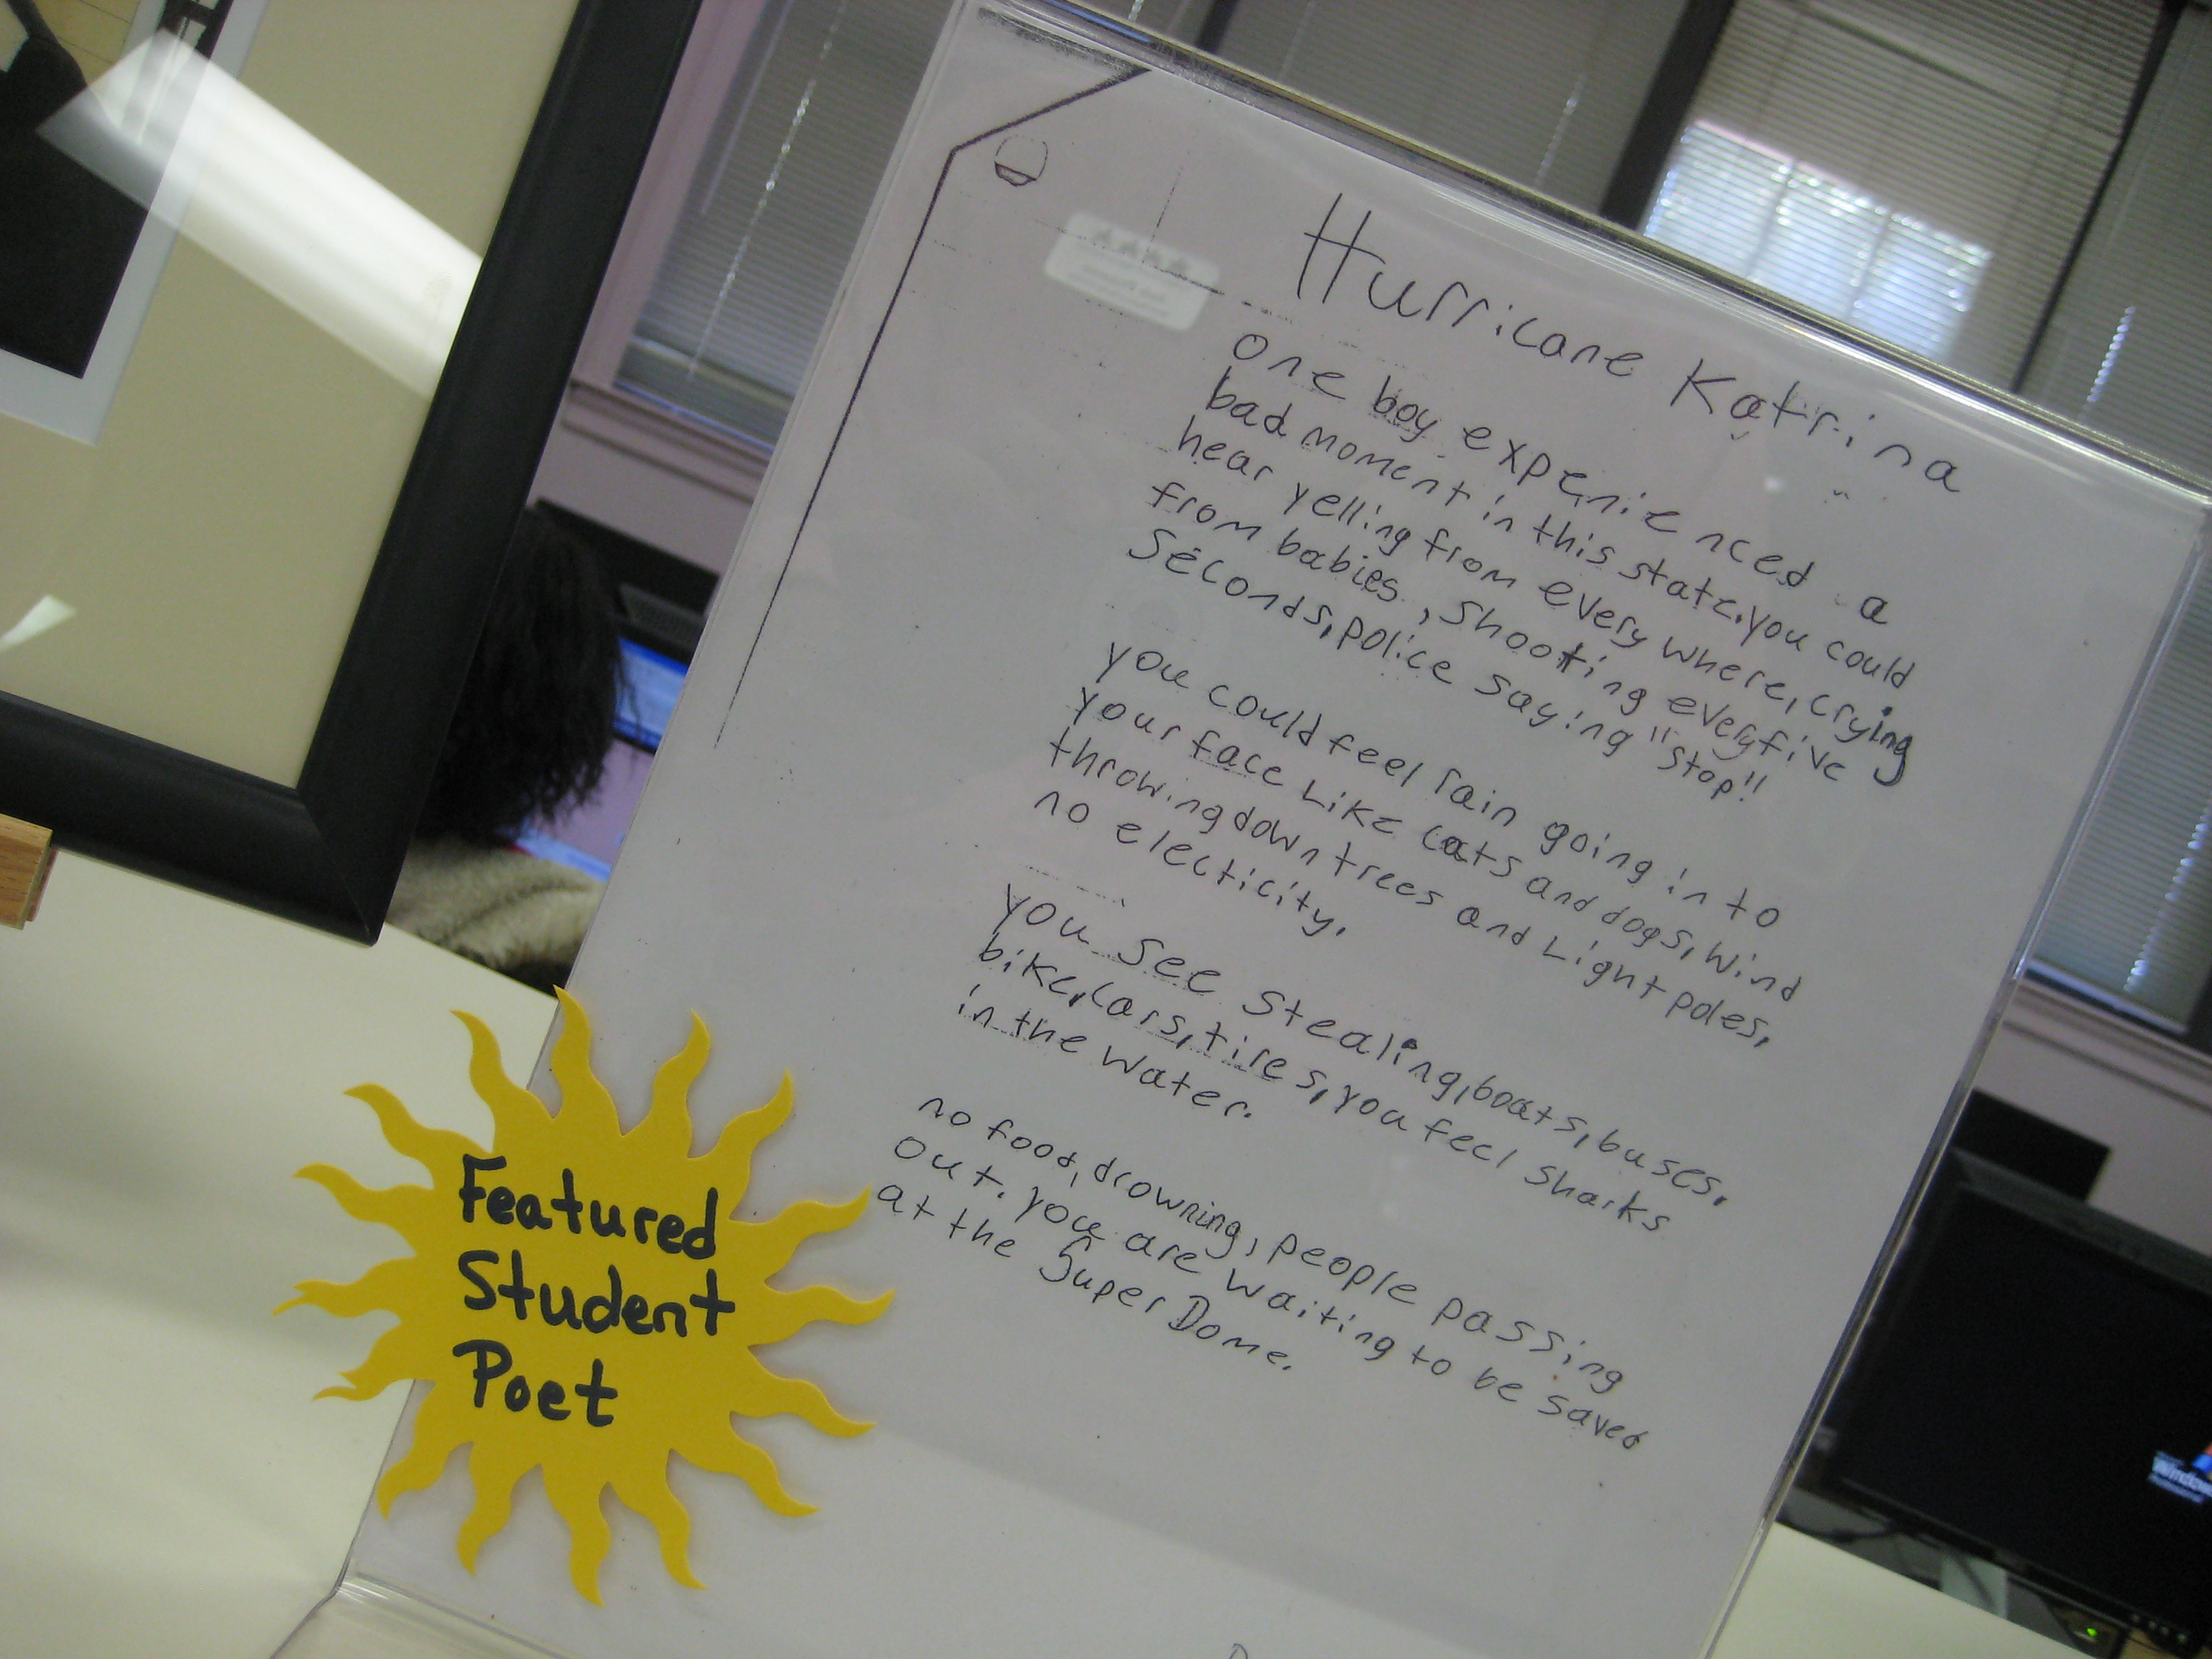 Hurricane Katrina
One boy experienced a
bad moment in this state. you could
hear yelling from every where, crying
from babies, Shooting every five
Seconds, police saying "Stop!!
you could feel rain going in to
your face Like cats and dogs, wind
throwing down trees and Light poles,
no electicity.
you see stealing, boats, buses,
bike, cars, tires, you feel sharks
in the water.
no food, drowning, people passing
out. you are waiting to be saved
at the Super Dome.
Featured
Student
Poet
Windows